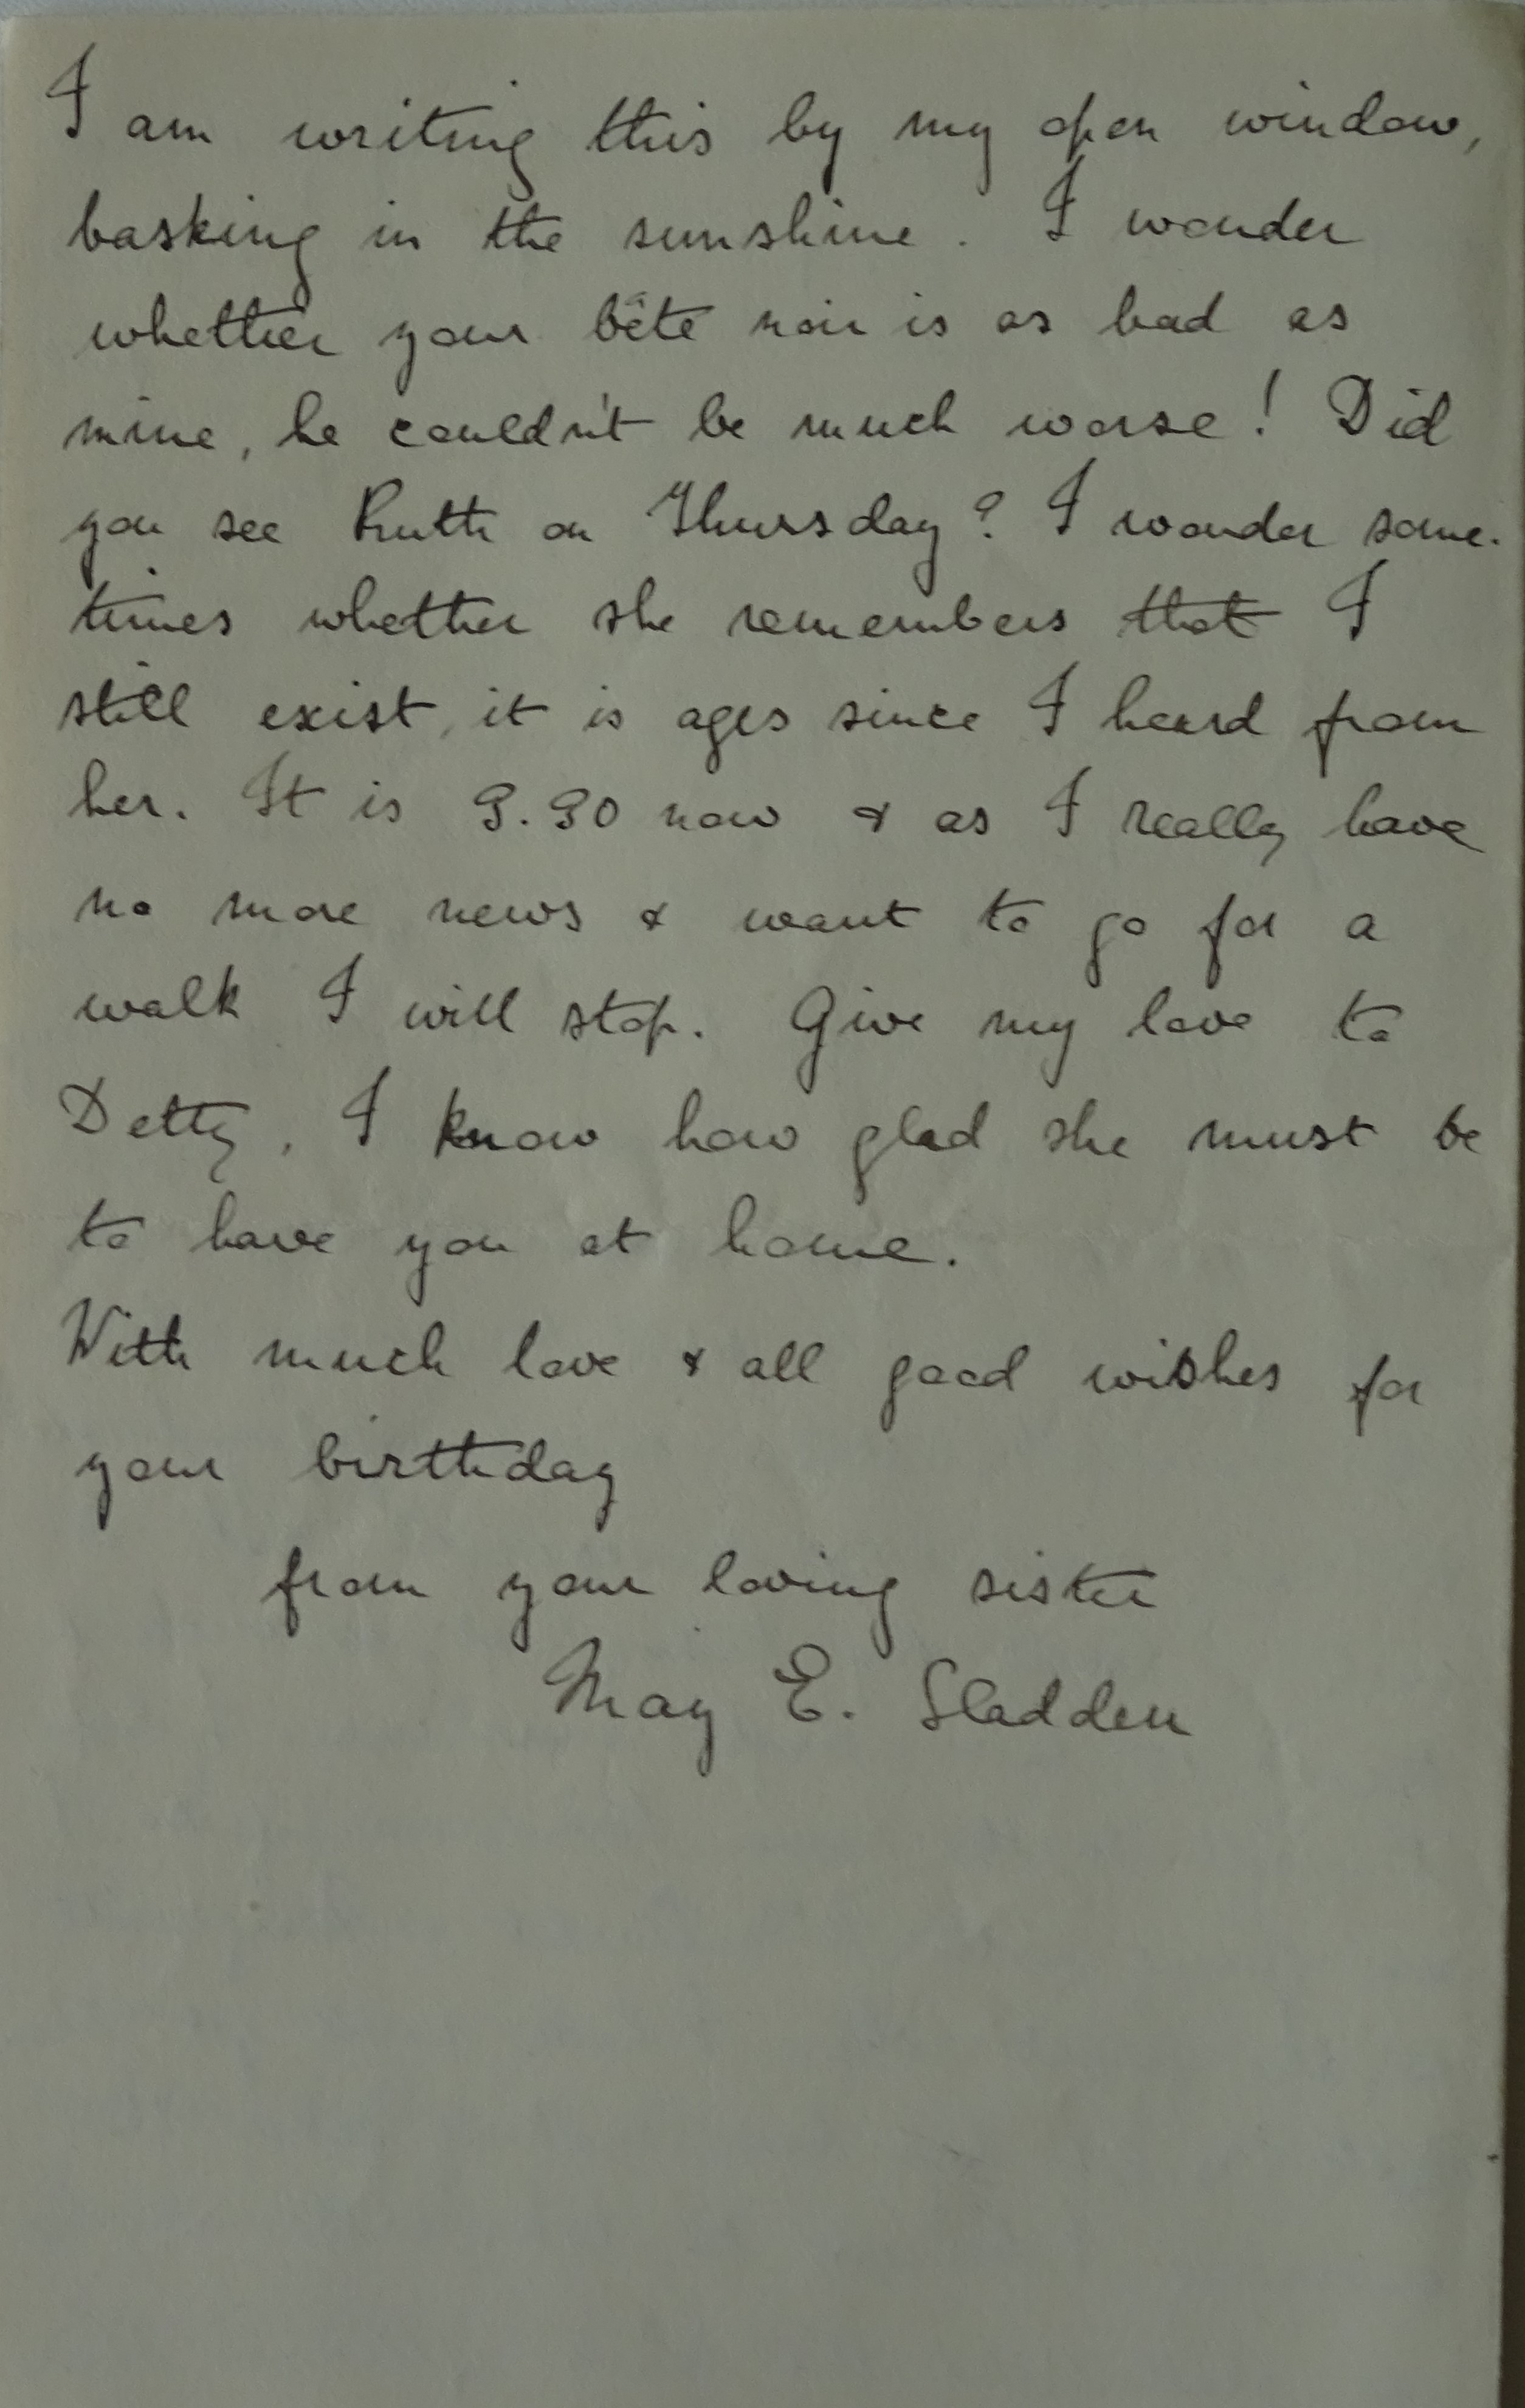 I am writing this by my open window,
basking in the sunshine. I wonder
whether your bête noir is as bad as
mine, he couldn't be much worse! Did
you see Ruth on Thursday? I wonder some-
times whether she remembers that I
still exist, it is ages since I heard from
her. It is 9.90 now & as I really have
no more news & want to go for a
walk I will stop. Give my love to
Detty, I know how glad she must be
to have you at home.
With much love & all good wishes for
your birthday
from your loving sister
May E. Sladden